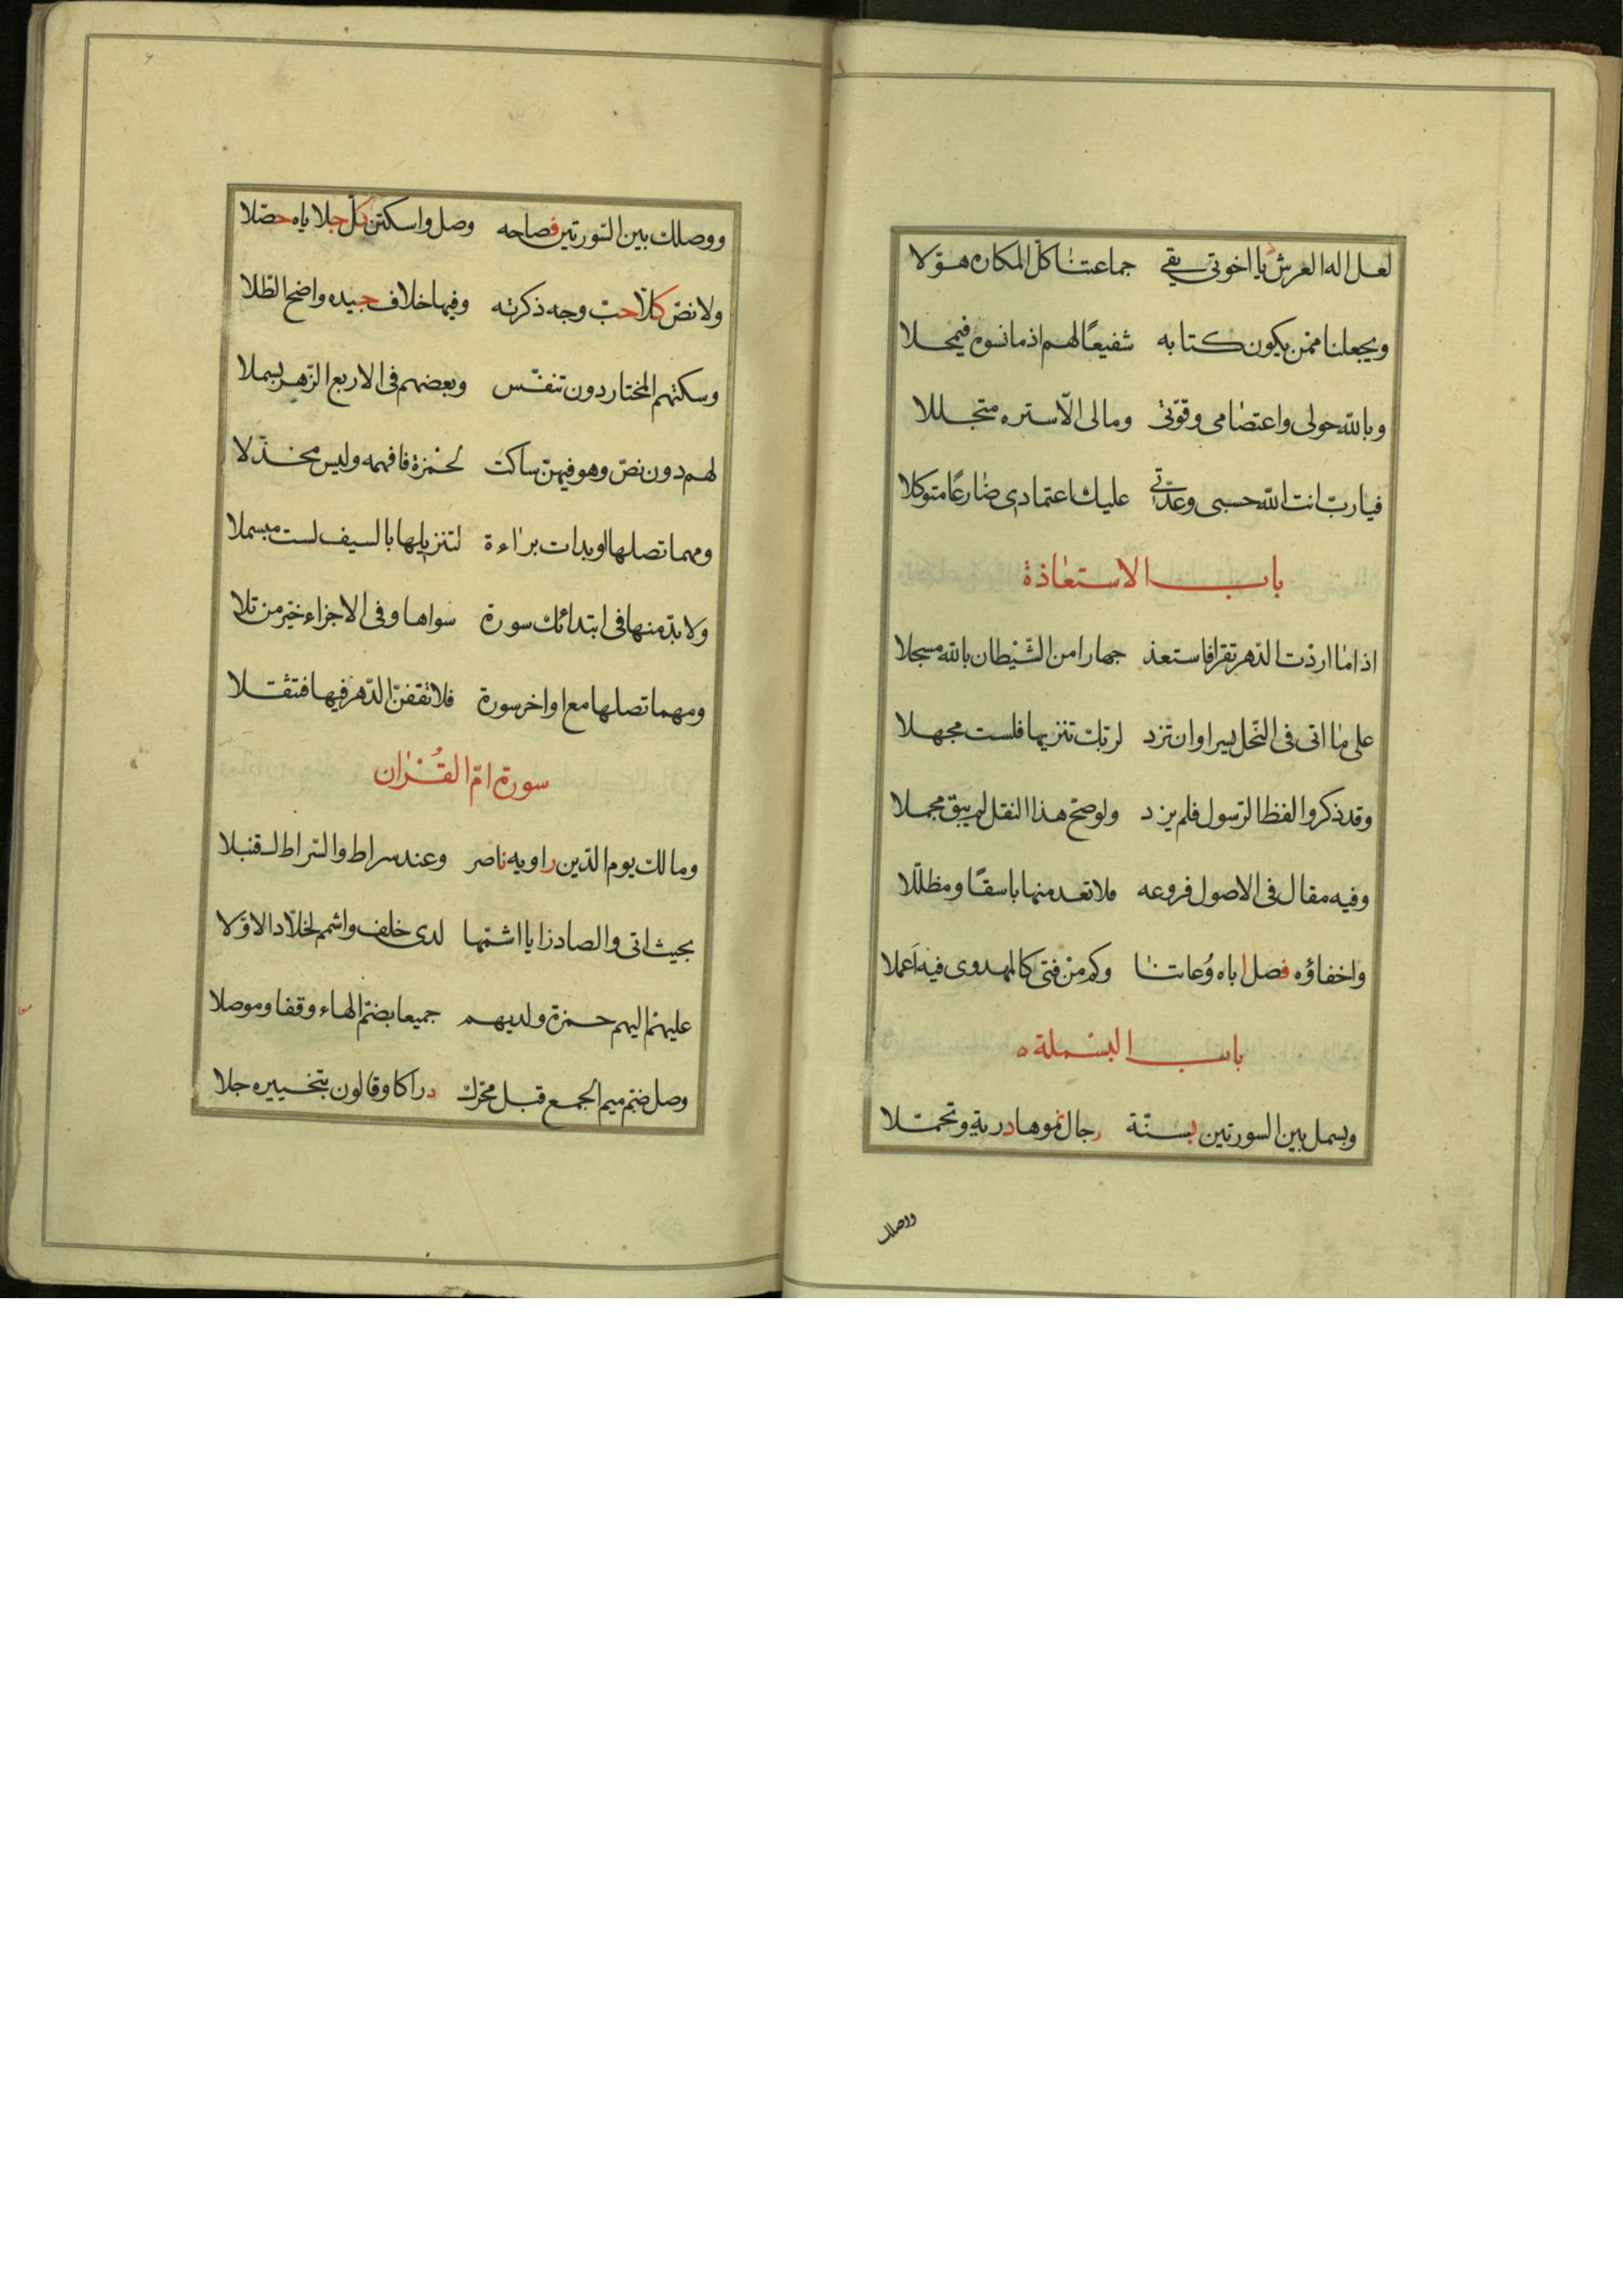 لعل اله العرش يا اخوتى يقى جماعتنا كل المكاره هوّلا
ويجعلنا ممن يكون كتابه شفيعًا لهم اذ ما نسوه فيمحلا
وبالله حولى واعتصامى وقوّتى ومالى الّا ستره متجللا
فيا ربّ انت الله حسبى وعدّتى عليك اعتمادى ضارعًا متوكلا
باب الاستعاذة
اذا ما اردت الدّهر تقرا فاستعذ جهارا من الشّيطان بالله مسجلا
على ما اتى فى النّحل يسرا وان تزد لربّك تنزيها فلست مجهلا
وقد ذكروا لفظ الرّسول فلم يزد ولو صحّ هذا النقل لم يبق مجملا
وفيه مقال فى الاصول فروعه فلا تعد منها باسقًا ومظللّا
واخفاؤه فصل اباه وُعاتنا وكم من فتى كالمهدوى فيه اَعملا
باب البسملة ه
وبسمل بين السورتين بسنّة رجال نموها درية وتحمّلا
ووصلك
ووصلك بين السّورتين فصاحه وصل واسكتن كلّ جلاياه حصّلا
ولا نصّ كلّا حبّ وجه ذكرته وفيها خلاف جيده واضح الطّلا
وسكتهم المختار دون تنفّس وبعضهم فى الاربع الزّهر بسملا
لهم دون نصّ وهو فيهنّ ساكت لحمزة فافهمه وليس مخذّلا
ومهما تصلها او بدات براءة لتنزيلها بالسيف لست مبسملا
ولا بدّ منها فى ابتدائك سورة سواها وفى الاجزاء خيّر من تلا
ومهما تصلها مع اواخر سورة فلا تقفنّ الدّهر فيها فتثقلا
سورة امّ القُران
ومالك يوم الدّين راويه ناصر وعند سراط والسّراط لـ قنبلا
بحيث اتى والصاد زايا اشمّها لدى خلف واشمم لخلّاد الاوّلا
عليهم اليهم حمزة ولديهم جميعا بضمّ الهاء وقفا وموصلا
وصل ضمّ ميم الجمع قبل محرّك دراكا وقالون بتخييره جلا